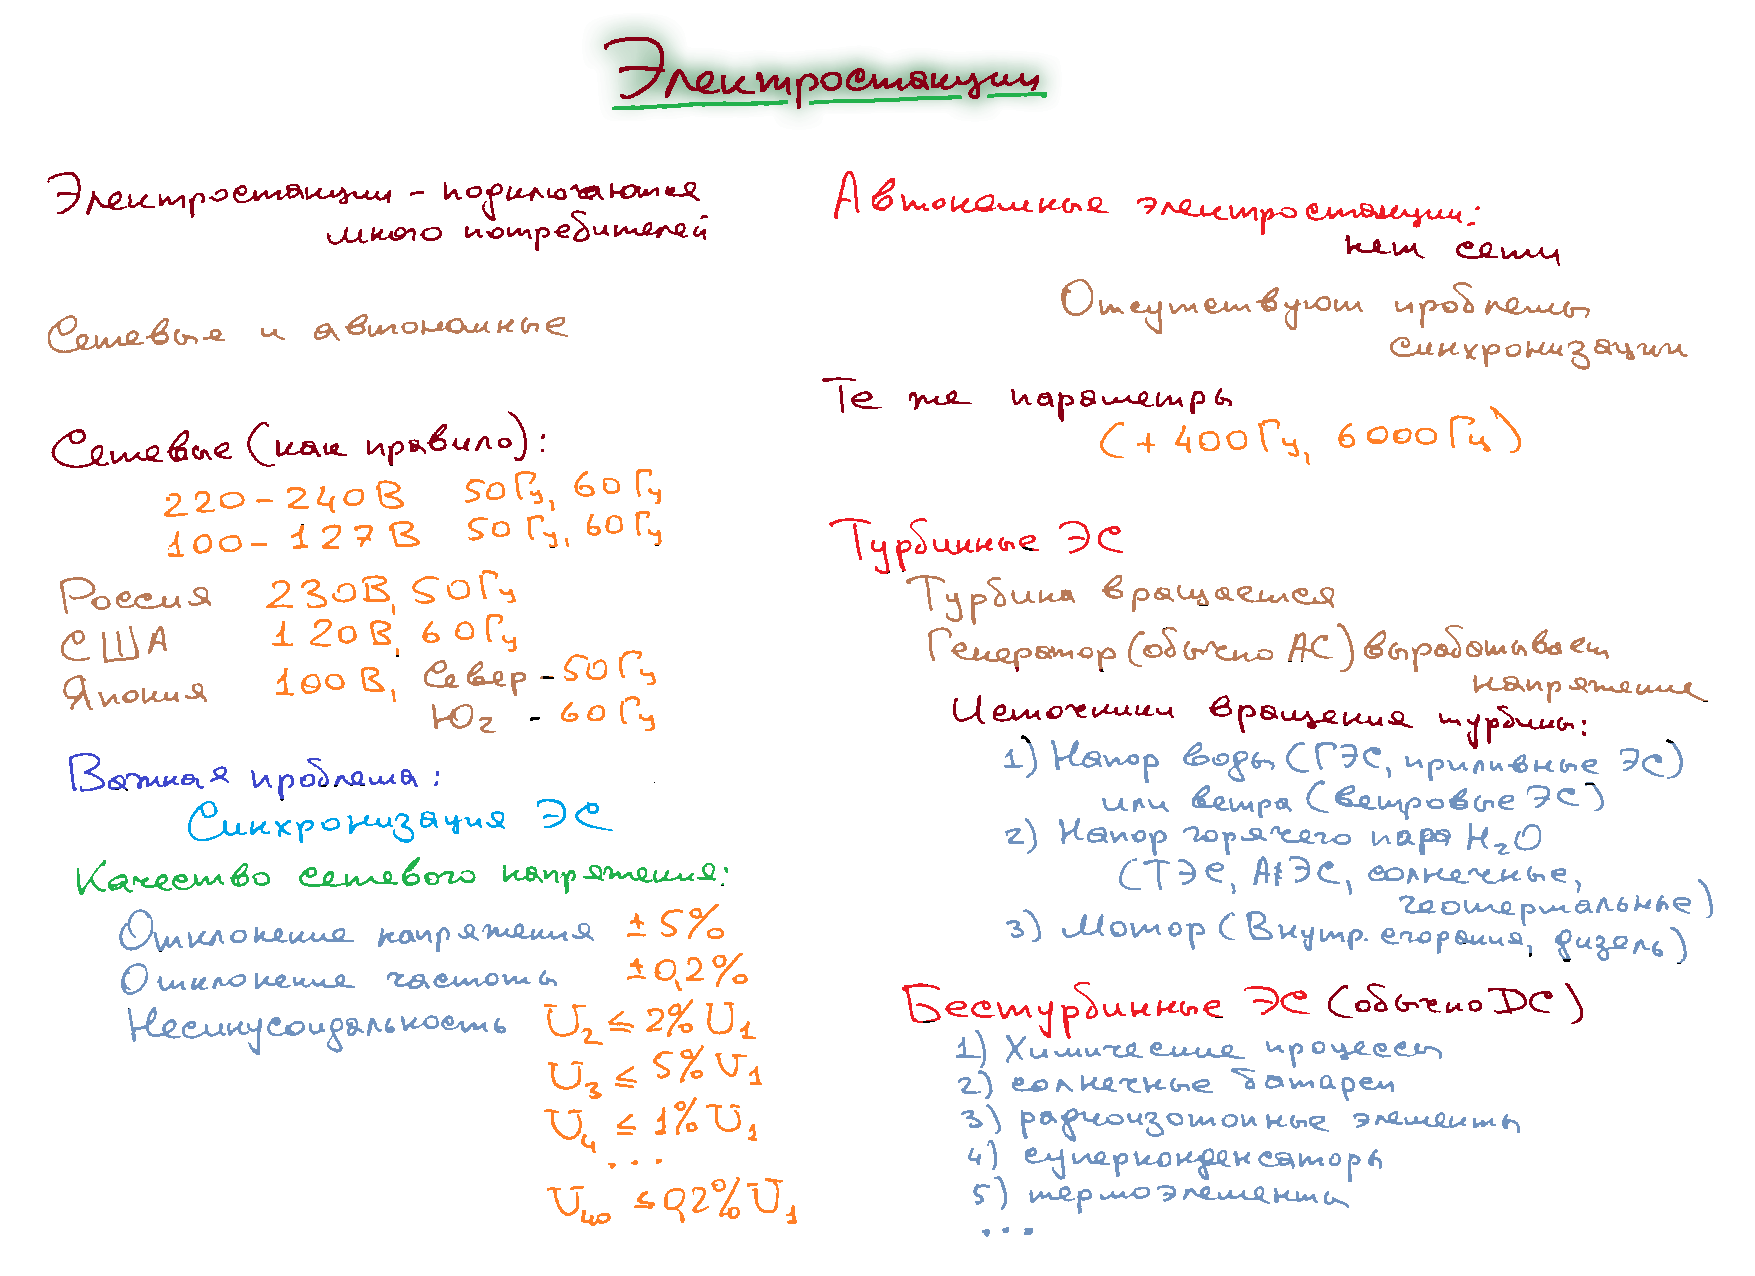 Электростанции
Электростанции - подключаются
много потребителей
Сетевые и автономные
Сетевые (как правило):
220-240В 50Гц, 60Гц
100-127В 50Гц, 60Гц
Россия 230В, 50Гц
США 120В, 60Гц
Япония 100В, Север - 50Гц
Юг - 60Гц
Важная проблема:
Синхронизация ЭС
Качество сетевого напряжения:
Отклонение напряжения ±5%
Отклонение частоты ±0,2%
Несинусоидальность U₂ ≤ 2% U₁
U₃ ≤ 5% U₁
U₄ ≤ 1% U₁
...
U₄₀ ≤ 0,2% U₁
Автономные электростанции:
нет сети
Отсутствуют проблемы
синхронизации
Те же параметры
(+ 400Гц, 6000Гц)
Турбинные ЭС
Турбина вращается
Генератор (обычно AC) вырабатывает
напряжение
Источники вращения турбины:
1) Напор воды (ГЭС, приливные ЭС)
или ветра (ветровые ЭС)
2) Напор горячего пара H₂O
(ТЭС, АЭС, солнечные,
геотермальные)
3) Мотор (Внутр. сгорания, дизель)
Бестурбинные ЭС (обычно DC)
1) Химические процессы
2) солнечные батареи
3) радиоизотопные элементы
4) суперконденсаторы
5) термоэлементы
...